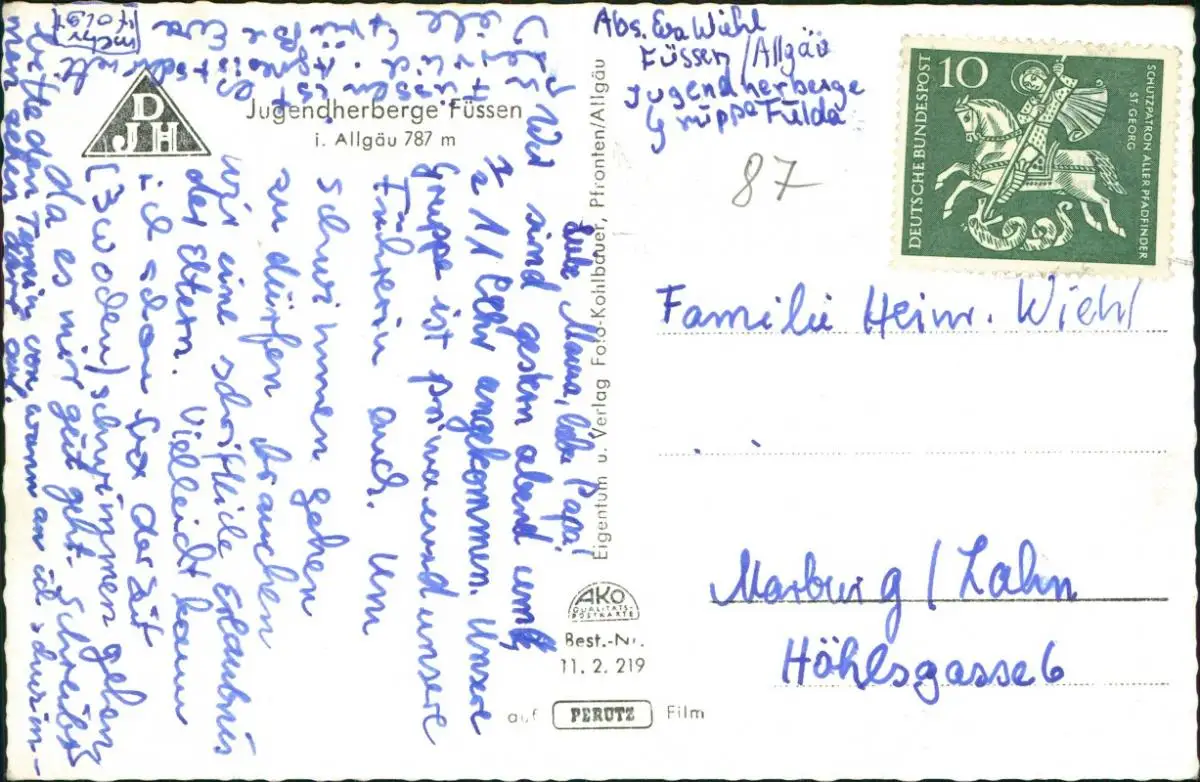 Abs. Eva Wiehl
Füssen/Allgäu
Jugendherberge
Gruppe Fulda
10
DEUTSCHE BUNDESPOST
SCHUTZPATRON ALLER PFADFINDER
ST. GEORG
87
DJH
Jugendherberge Füssen
i. Allgäu 787 m
Liebe Mama, liebe Papa!
Wir sind gestern abend um
½ 11 Uhr angekommen. Unsere
Gruppe ist prima und unsere
Führerin auch. Um
schwimmen gehen
zu dürfen brauchen
wir eine schriftliche Erlaubnis
der Eltern. Vielleicht kann
ich schon vor der Zeit
(3 Wochen) schwimmen gehen
da es mir gut geht. Schreibt
bitte den Termin von wann an ich schwim-
men gehen darf auf.
Füssen ist
Viele Grüße Eure
Eva
Familie Heinr. Wiehl
Marburg/Lahn
Höhlsgasse 6
Eigentum u. Verlag Foto-Kohlbauer, Pfronten/Allgäu
AKO
QUALITÄTS-
POSTKARTE
Best.-Nr.
11. 2. 219
auf PERUTZ Film